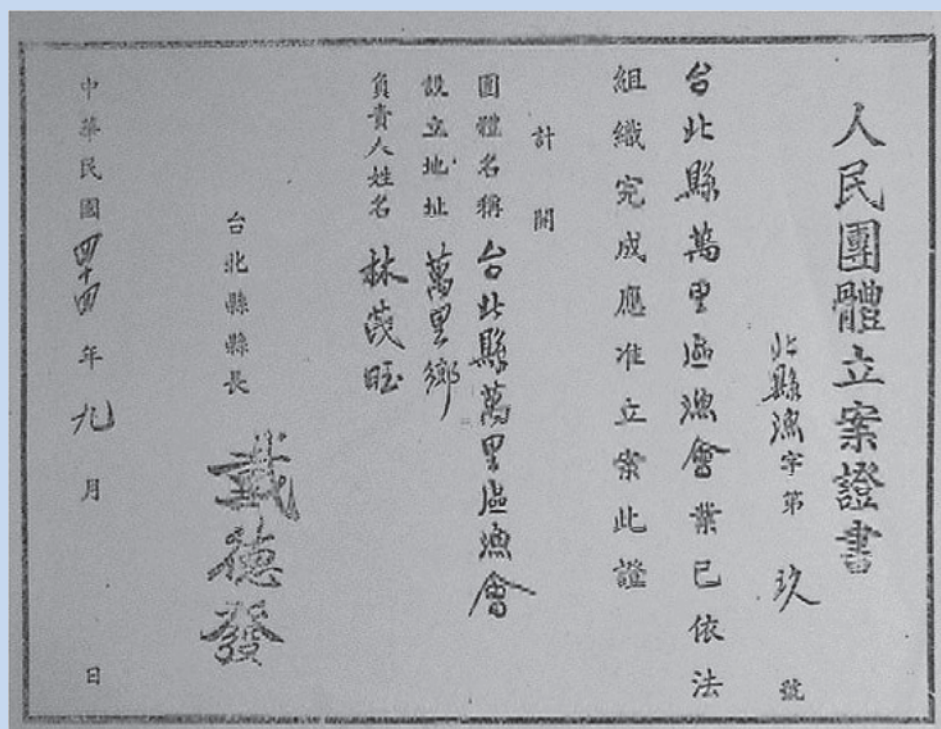 人民團體立案證書
北縣漁字第玖號
台北縣萬里區漁會業已依法
組織完成應准立案此證
計開
團體名稱 台北縣萬里區漁會
設立地址 萬里鄉
負責人姓名 林茂旺
台北縣縣長 戴德發
中華民國四十四年九月 日